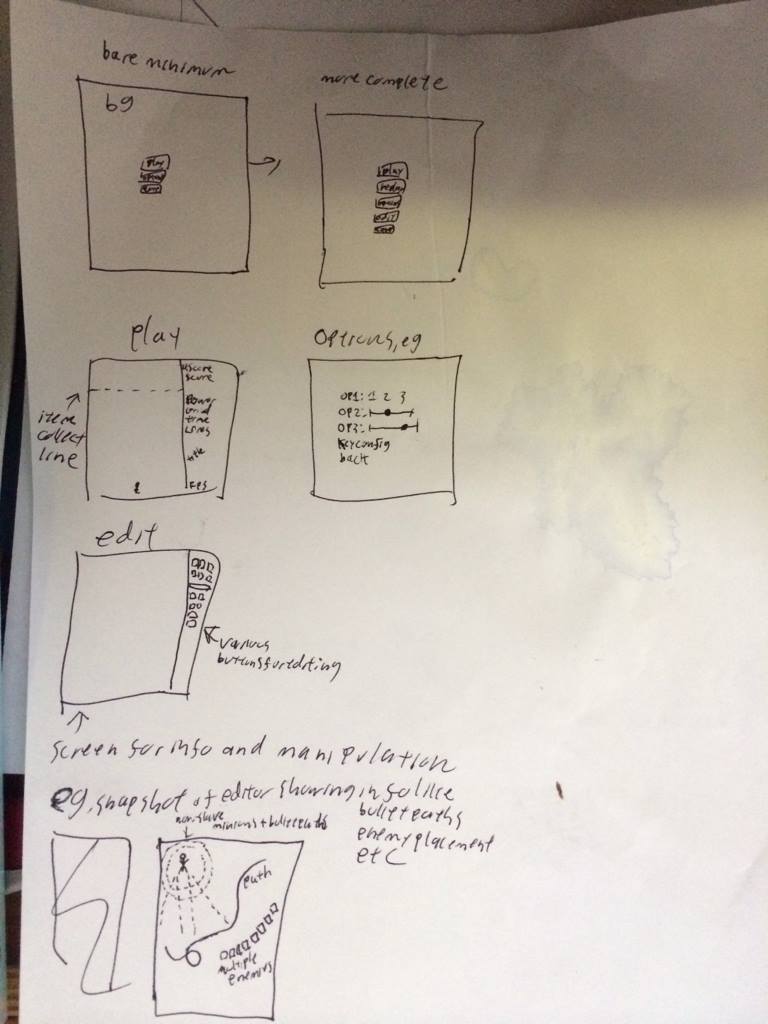 bare minimum
more complete
bg
play
play
edit
play
options, eg
score
score
power
time
lives
title
FPS
item
collect
line
OP1: 1 2 3
OP2:
OP3:
keyconfig
back
edit
various
buttons for editing
screen for info and manipulation
eg, snapshot of editor showing info like
bullet paths
enemy placement
etc
minions + bullet paths
path
multiple
enemies